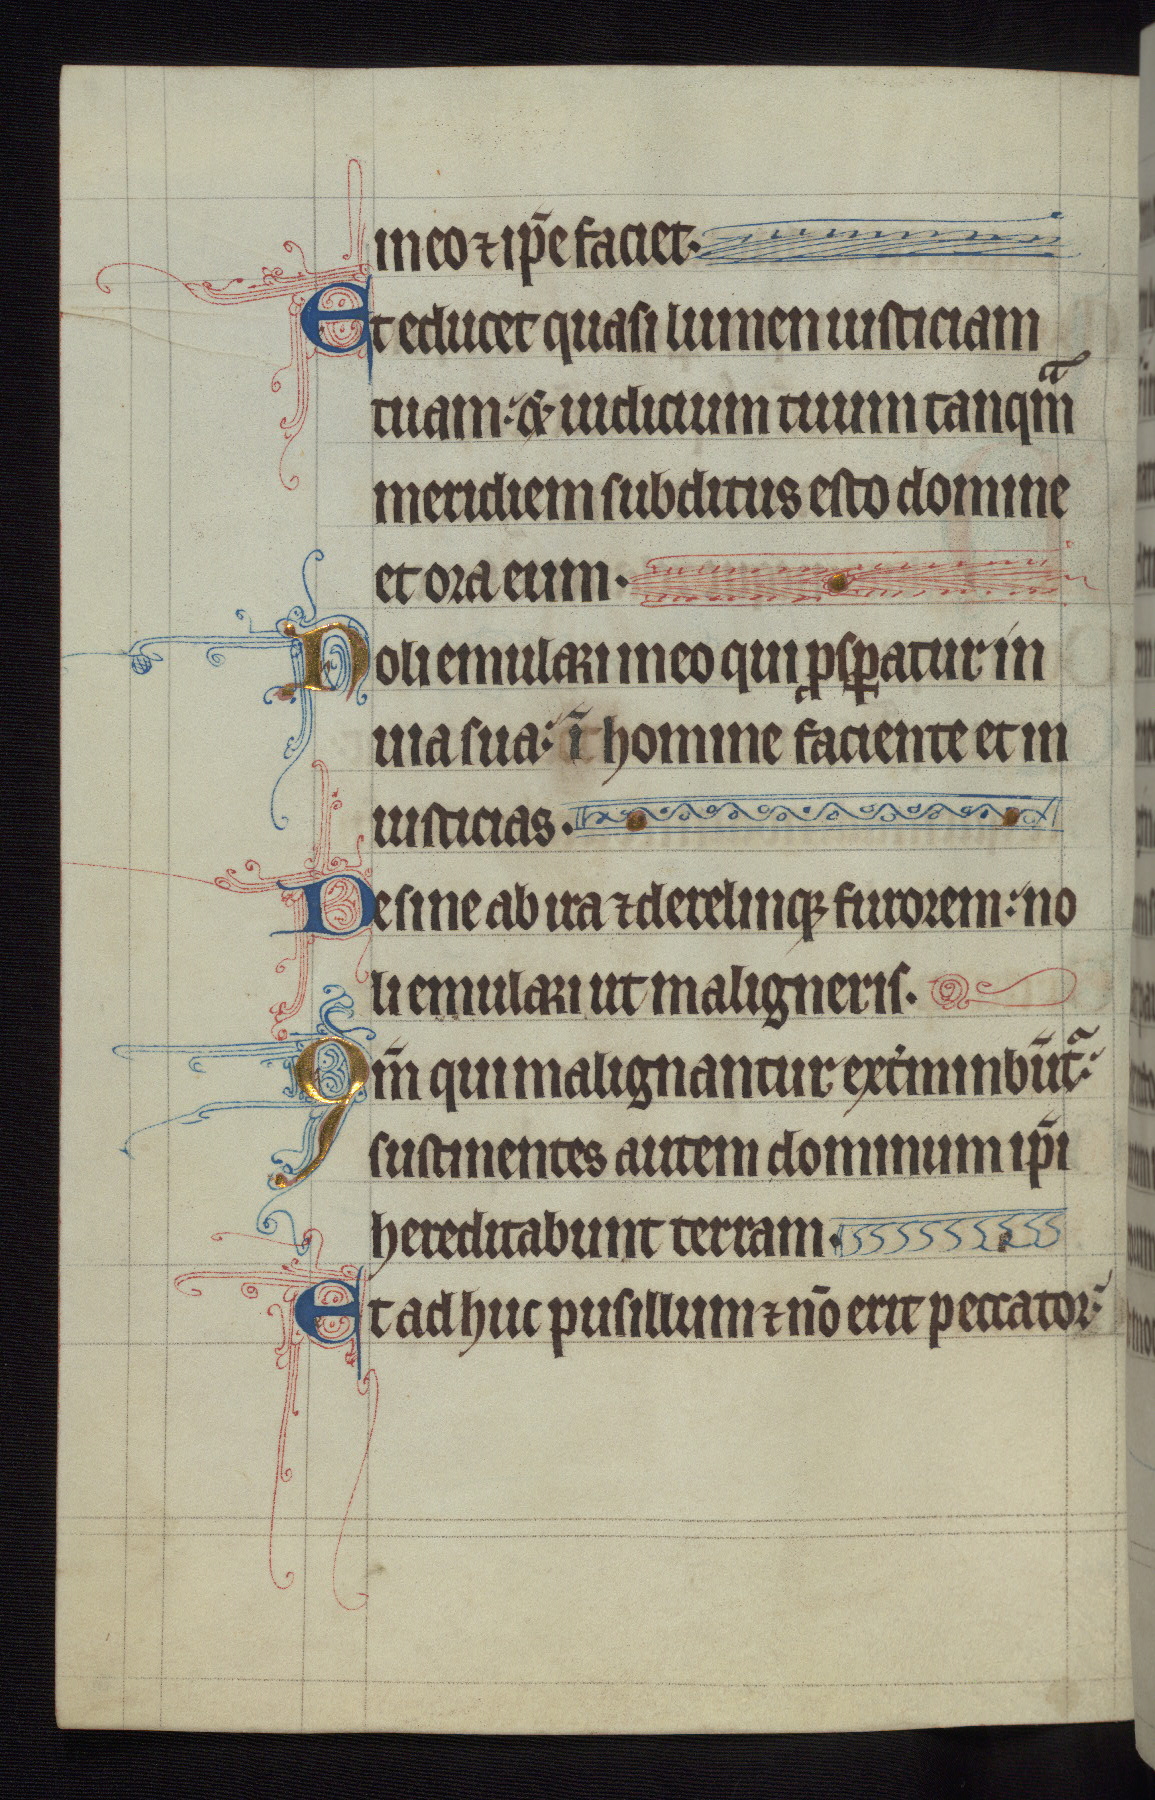 in eo ⁊ ip̄e faciet·
Et educet quasi lumen iusticiam
tuam: & iudicium tuum tanqᵃm̄
meridiem subditus esto domine
et ora eum·
Noli emulari in eo qui ꝓsꝑatur in
uia sua: ī homine faciente et in
iusticias·
Desine ab ira ⁊ derelinqꝫ furorem: no
li emulari ut maligneris·
Qm̄ qui malignantur ext̓minabūtᵃ:
sustinentes autem dominum ip̄i
hereditabunt terram·
Et ad huc pusillum ⁊ nō erit peccator: